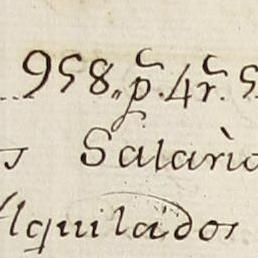 958„ p.̃ 4r.̃
Salario
Alquilados